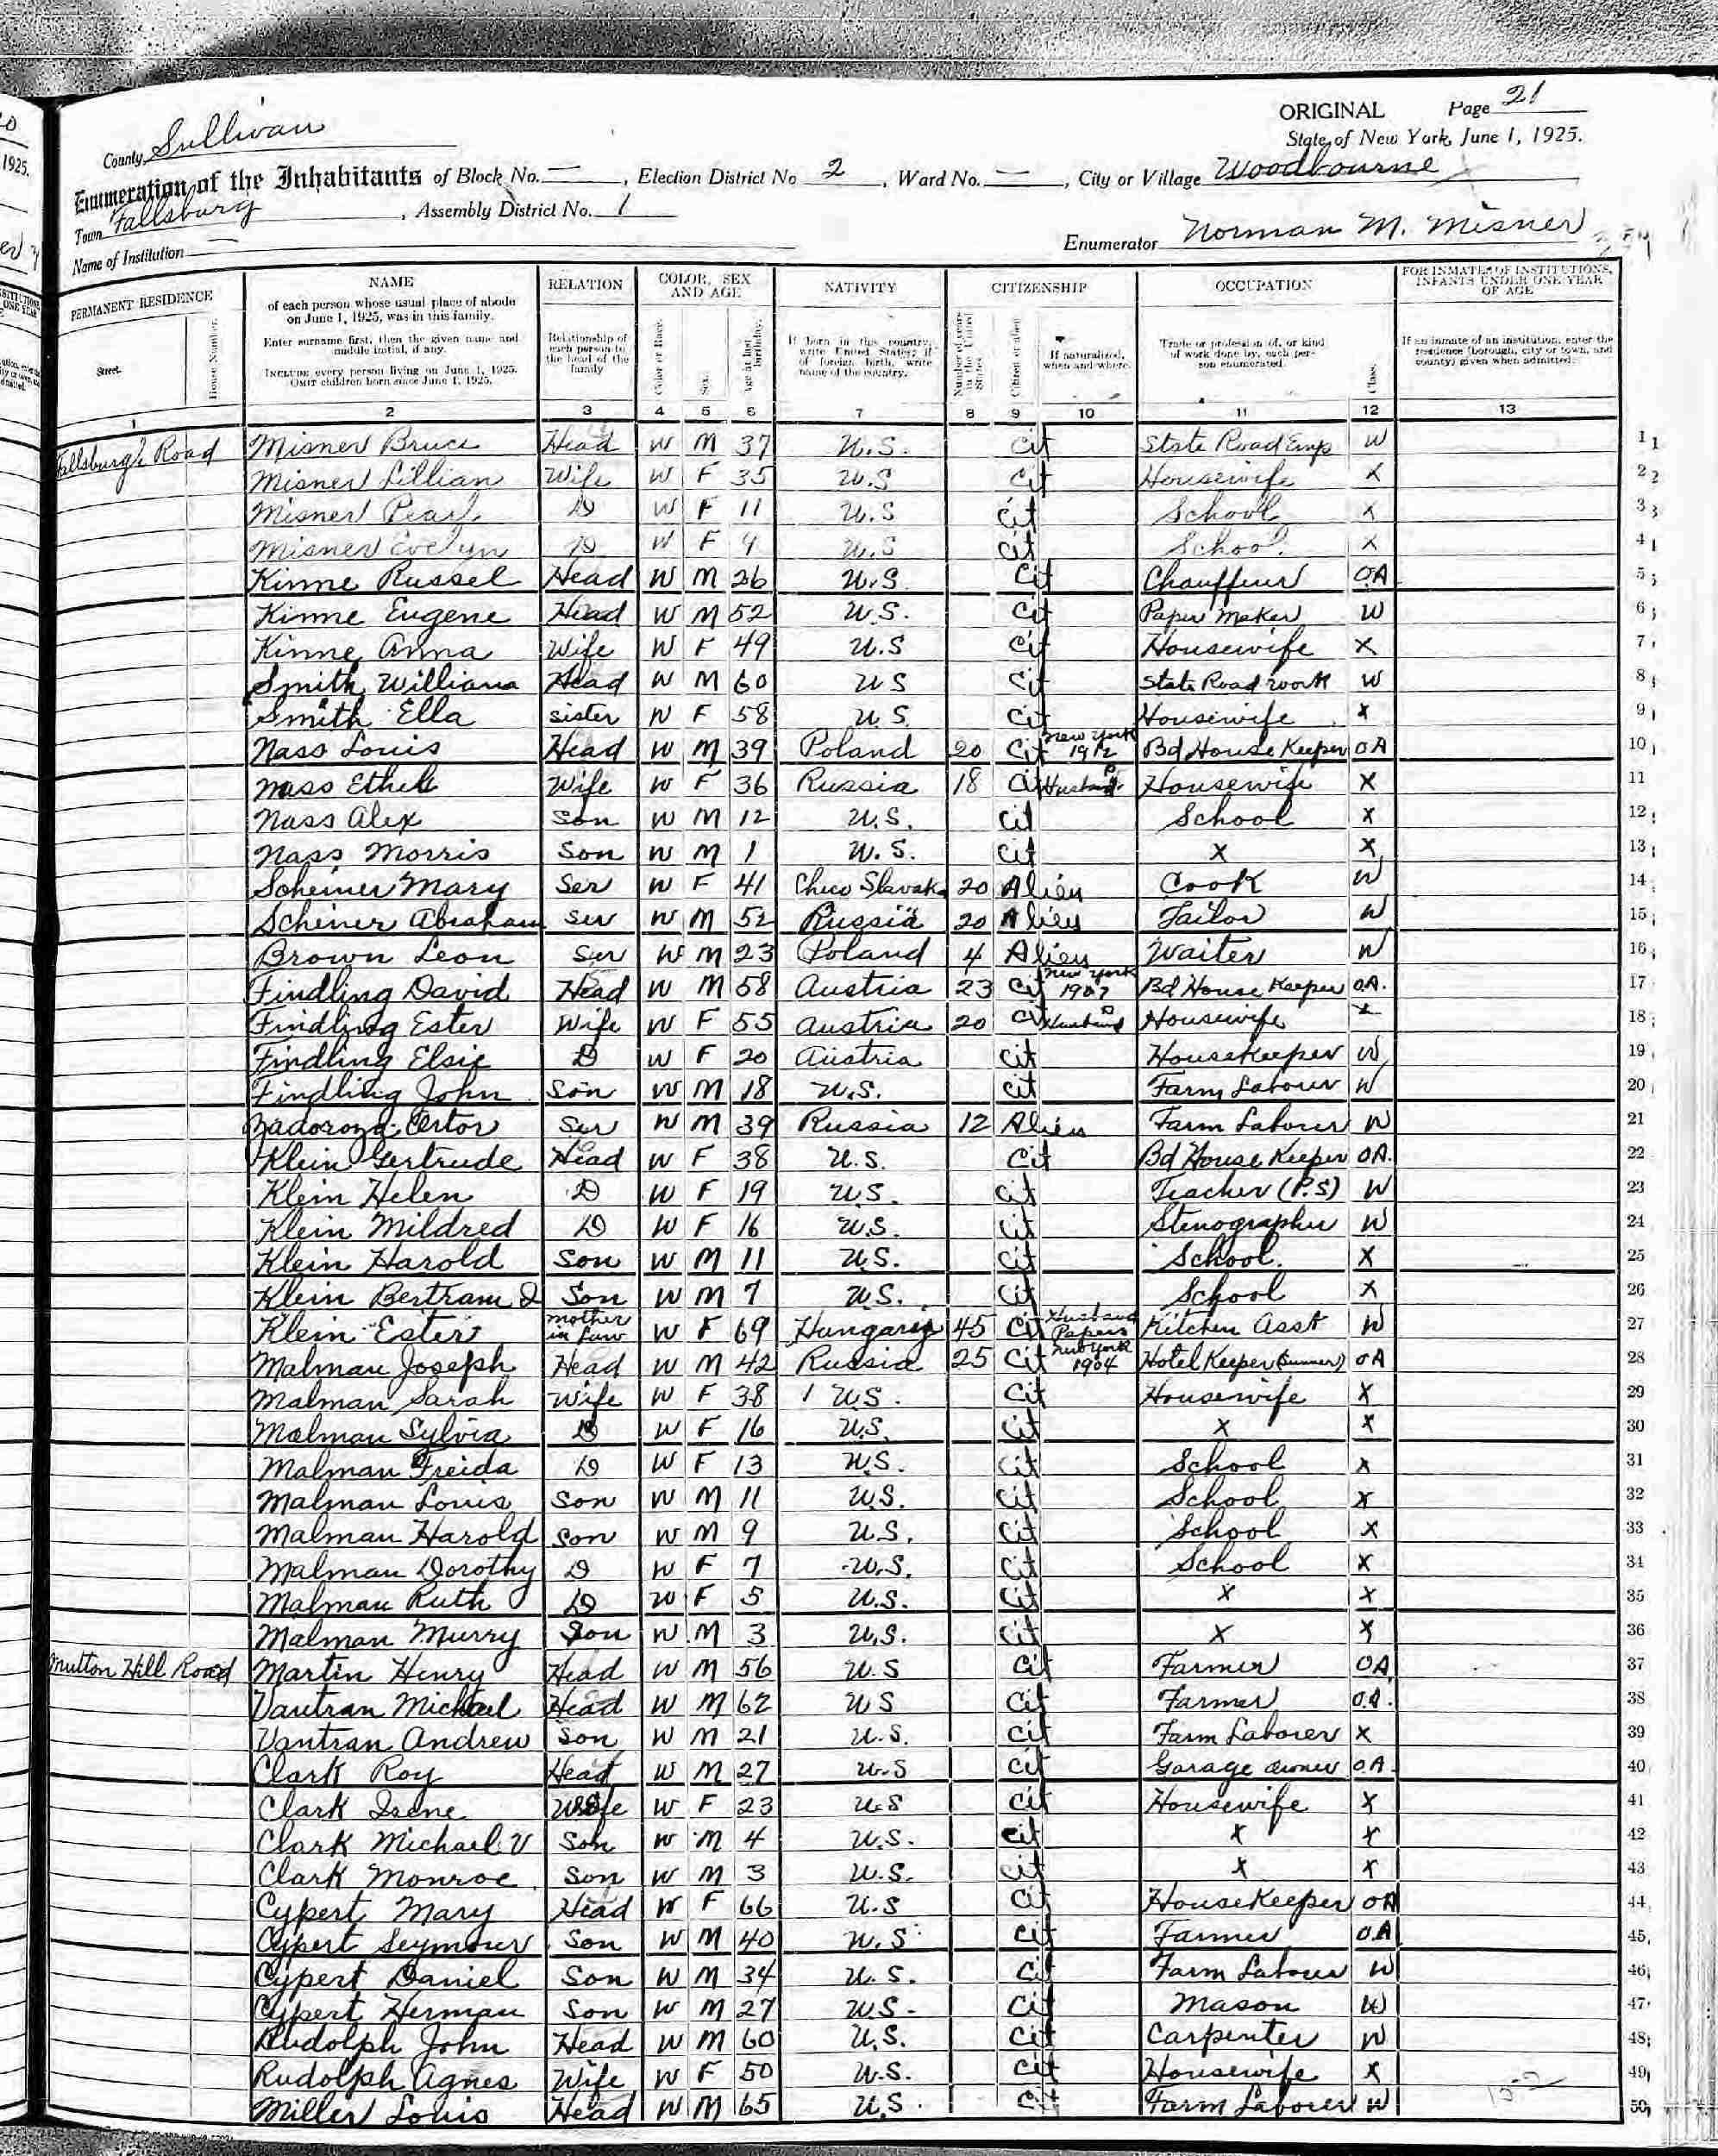 ORIGINAL Page 21
County Sullivan State of New York, June 1, 1925.
Enumeration of the Inhabitants of Block No. — , Election District No 2 , Ward No. — , City or Village Woodbourne
Town Fallsburg , Assembly District No. 1
Name of Institution — Enumerator Norman M. Misner
PERMANENT RESIDENCE NAME RELATION COLOR, SEX AND AGE NATIVITY CITIZENSHIP OCCUPATION FOR INMATES OF INSTITUTIONS, INFANTS UNDER ONE YEAR OF AGE
Street. House Number. of each person whose usual place of abode on June 1, 1925, was in this family. Enter surname first, then the given name and middle initial, if any. INCLUDE every person living on June 1, 1925. OMIT children born since June 1, 1925. Relationship of each person to the head of the family Color or Race. Sex. Age at last birthday. If born in this country, write United States; if of foreign birth, write name of the country. Number of years in the United States Citizen or alien If naturalized, when and where. Trade or profession of, or kind of work done by, each person enumerated. Class. If an inmate of an institution, enter the residence (borough, city or town, and county) given when admitted.
1 2 3 4 5 6 7 8 9 10 11 12 13
Fallsburgh Road Misner Bruce Head W M 37 U.S. Cit State Road Emp W 1
Misner Lillian Wife W F 35 U.S Cit Housewife X 2
Misner Pearl D W F 11 U.S Cit School X 3
Misner Evelyn D W F 9 U.S Cit School X 4
Kinne Russel Head W M 26 U.S. Cit Chauffeur OA 5
Kinne Eugene Head W M 52 U.S. Cit Paper Maker W 6
Kinne Anna Wife W F 49 U.S Cit Housewife X 7
Smith William Head W M 60 U S Cit State Road Work W 8
Smith Ella sister W F 58 U.S. Cit Housewife X 9
Nass Louis Head W M 39 Poland 20 Cit New York 1912 Bd House Keeper OA 10
Nass Ethel Wife W F 36 Russia 18 Cit Husband P Housewife X 11
Nass Alex Son W M 12 U.S. Cit School X 12
Nass Morris Son W M 1 U.S. Cit X X 13
Scheiner Mary Ser W F 41 Checo Slavak 20 Alien Cook W 14
Scheiner Abraham Ser W M 52 Russia 20 Alien Tailor W 15
Brown Leon Ser W M 23 Poland 4 Alien Waiter W 16
Findling David Head W M 58 Austria 23 Cit New York 1907 Bd House Keeper OA. 17
Findling Ester Wife W F 55 Austria 20 Cit Husband P Housewife X 18
Findling Elsie D W F 20 Austria Cit Housekeeper W 19
Findling John Son W M 18 U.S. Cit Farm Laborer W 20
Ser W M 39 Russia 12 Alien Farm Laborer W 21
Klein Gertrude Head W F 38 U.S. Cit Bd House Keeper OA. 22
Klein Helen D W F 19 U.S. Cit Teacher (P.S) W 23
Klein Mildred D W F 16 U.S. Cit Stenographer W 24
Klein Harold Son W M 11 U.S. Cit School. X 25
Klein Bertram D Son W M 7 U.S. Cit School X 26
Klein Ester mother in Law W F 69 Hungary 45 Cit Husband Papers Kitchen Asst W 27
Malman Joseph Head W M 42 Russia 25 Cit New York 1904 Hotel Keeper (Summer) OA 28
Malman Sarah Wife W F 38 U.S. Cit Housewife X 29
Malman Sylvia D W F 16 U.S. Cit X X 30
Malman Freida D W F 13 U.S. Cit School X 31
Malman Louis Son W M 11 U.S. Cit School X 32
Malman Harold Son W M 9 U.S. Cit School X 33
Malman Dorothy D W F 7 U.S. Cit School X 34
Malman Ruth D W F 5 U.S. Cit X X 35
Malman Murry Son W M 3 U.S. Cit X X 36
Mutton Hill Road Martin Henry Head W M 56 U.S Cit Farmer OA 37
Vantran Michael Head W M 62 U S Cit Farmer O.A. 38
Vantran Andrew Son W M 21 U.S. Cit Farm Laborer X 39
Clark Roy Head W M 27 U.S Cit Garage owner OA. 40
Clark Irene Wife W F 23 U.S Cit Housewife X 41
Clark Michael V Son W M 4 U.S. Cit X X 42
Clark Monroe Son W M 3 U.S. Cit X X 43
Cypert Mary Head W F 66 U.S Cit HouseKeeper OA 44
Cypert Seymour Son W M 40 U.S. Cit Farmer O.A 45
Cypert Daniel Son W M 34 U.S. Cit Farm Laborer W 46
Cypert Herman Son W M 27 U.S. Cit Mason W 47
Rudolph John Head W M 60 U.S. Cit Carpenter W 48
Rudolph Agnes Wife W F 50 U.S. Cit Housewife X 49
Miller Louis Head W M 65 U.S. Cit Farm Laborer W 50